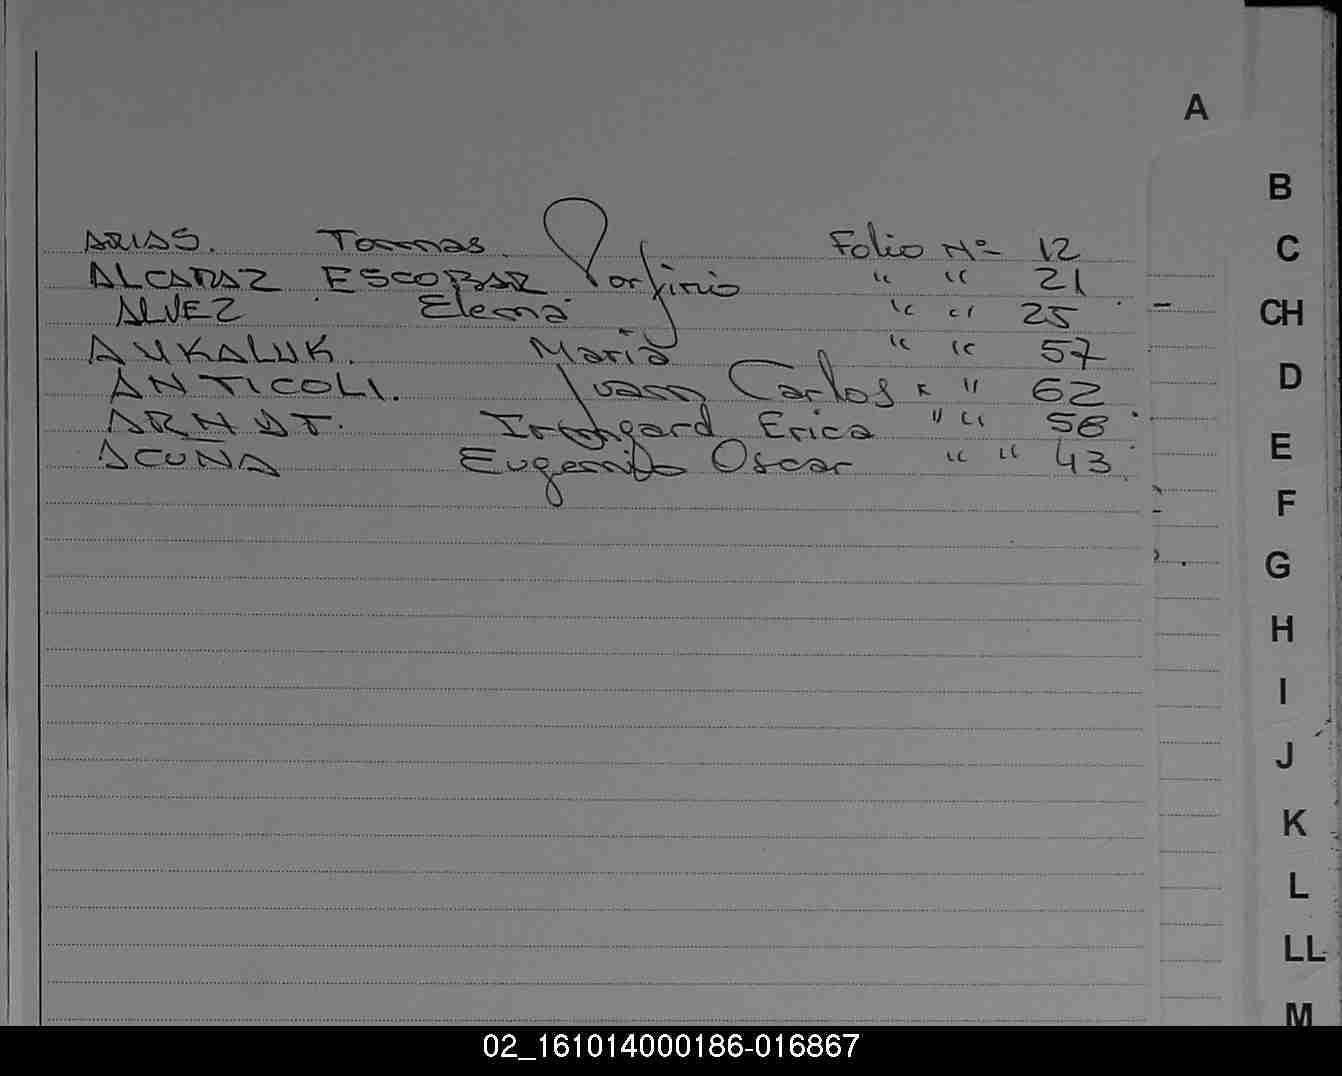 A
B
C
CH
D
E
F
G
H
I
J
K
L
LL
M
ARIAS. Tomas. Folio Nº 12
ALCARAZ ESCOBAR Porfirio " " 21
ALVEZ Elena " " 25
AUKALUK. Maria " " 57
ANTICOLI. Juan Carlos " " 62
ARNDT. Irmgard Erica " " 58
ACUÑA Eugenio Oscar " " 43
02_161014000186-016867